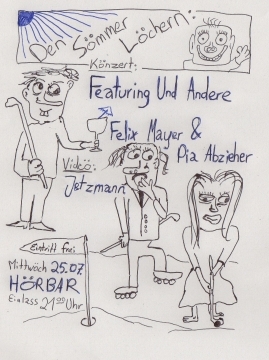 Den Sömmer Löchern:
Könzert:
Featuring Und Andere
Felix Mayer &
Pia Abzieher
Videö:
Jetzmann
Eintritt frei
Mittwöch 25.07.
HÖRBAR
Einlzss 21°° Uhr